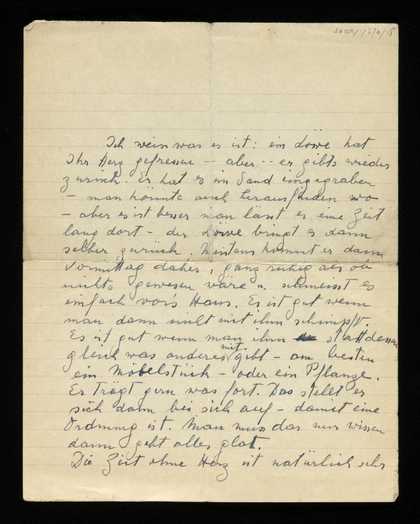 Ich weiss was es ist: ein Löwe hat
Ihr Herz gefressen – aber – er gibts wieder
zurück. Er hat es im Sand eingegraben
– man könnte auch herausfinden wo
– aber es ist besser man lasst es eine Zeit
lang dort – der Löwe bringt es dann
selber zurück. Meistens kommt er dann
Vormittag daher, ganz ruhig als ob
nichts gewesen wäre u. schmeisst es
einfach vors Haus. Es ist gut wenn
man dann nicht mit ihm schimpft.
Es ist gut wenn man ihm statt dessen
gleich was anderes mit gibt – am besten
ein Möbelstück – oder ein Pflanze.
Er trägt gern was fort. Das stellt er
sich dann bei sich auf – damit eine
Ordnung ist. Man muss das nur wissen
dann geht alles glatt.
Die Zeit ohne Herz ist natürlich sehr